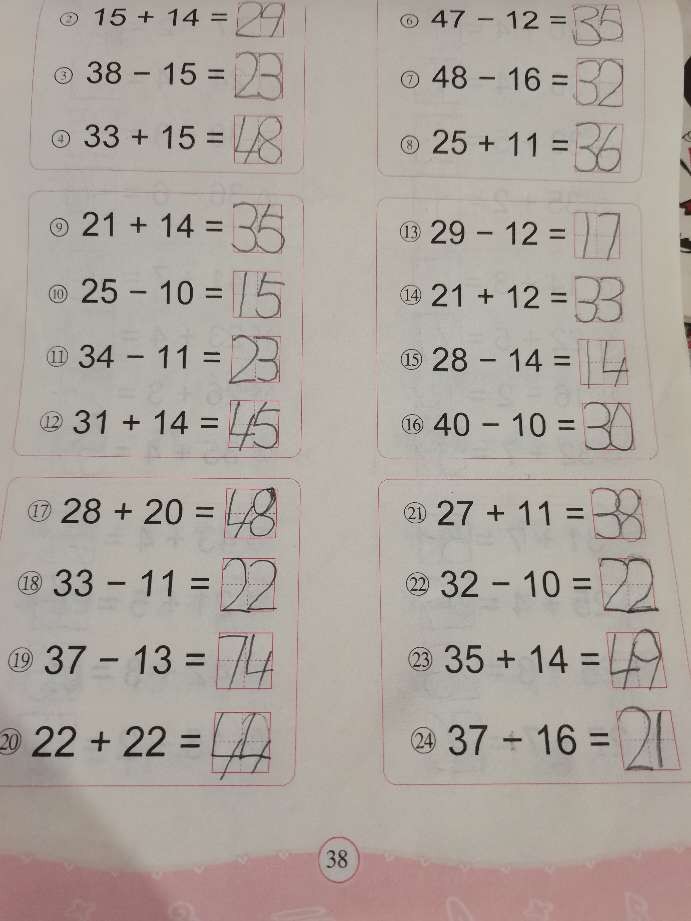 ② 15 + 14 = 29
③ 38 − 15 = 23
④ 33 + 15 = 48
⑥ 47 − 12 = 35
⑦ 48 − 16 = 32
⑧ 25 + 11 = 36
⑨ 21 + 14 = 35
⑩ 25 − 10 = 15
⑪ 34 − 11 = 23
⑫ 31 + 14 = 45
⑬ 29 − 12 = 17
⑭ 21 + 12 = 33
⑮ 28 − 14 = 14
⑯ 40 − 10 = 30
⑰ 28 + 20 = 48
⑱ 33 − 11 = 22
⑲ 37 − 13 = 74
⑳ 22 + 22 = 44
㉑ 27 + 11 = 38
㉒ 32 − 10 = 22
㉓ 35 + 14 = 49
㉔ 37 − 16 = 21
38